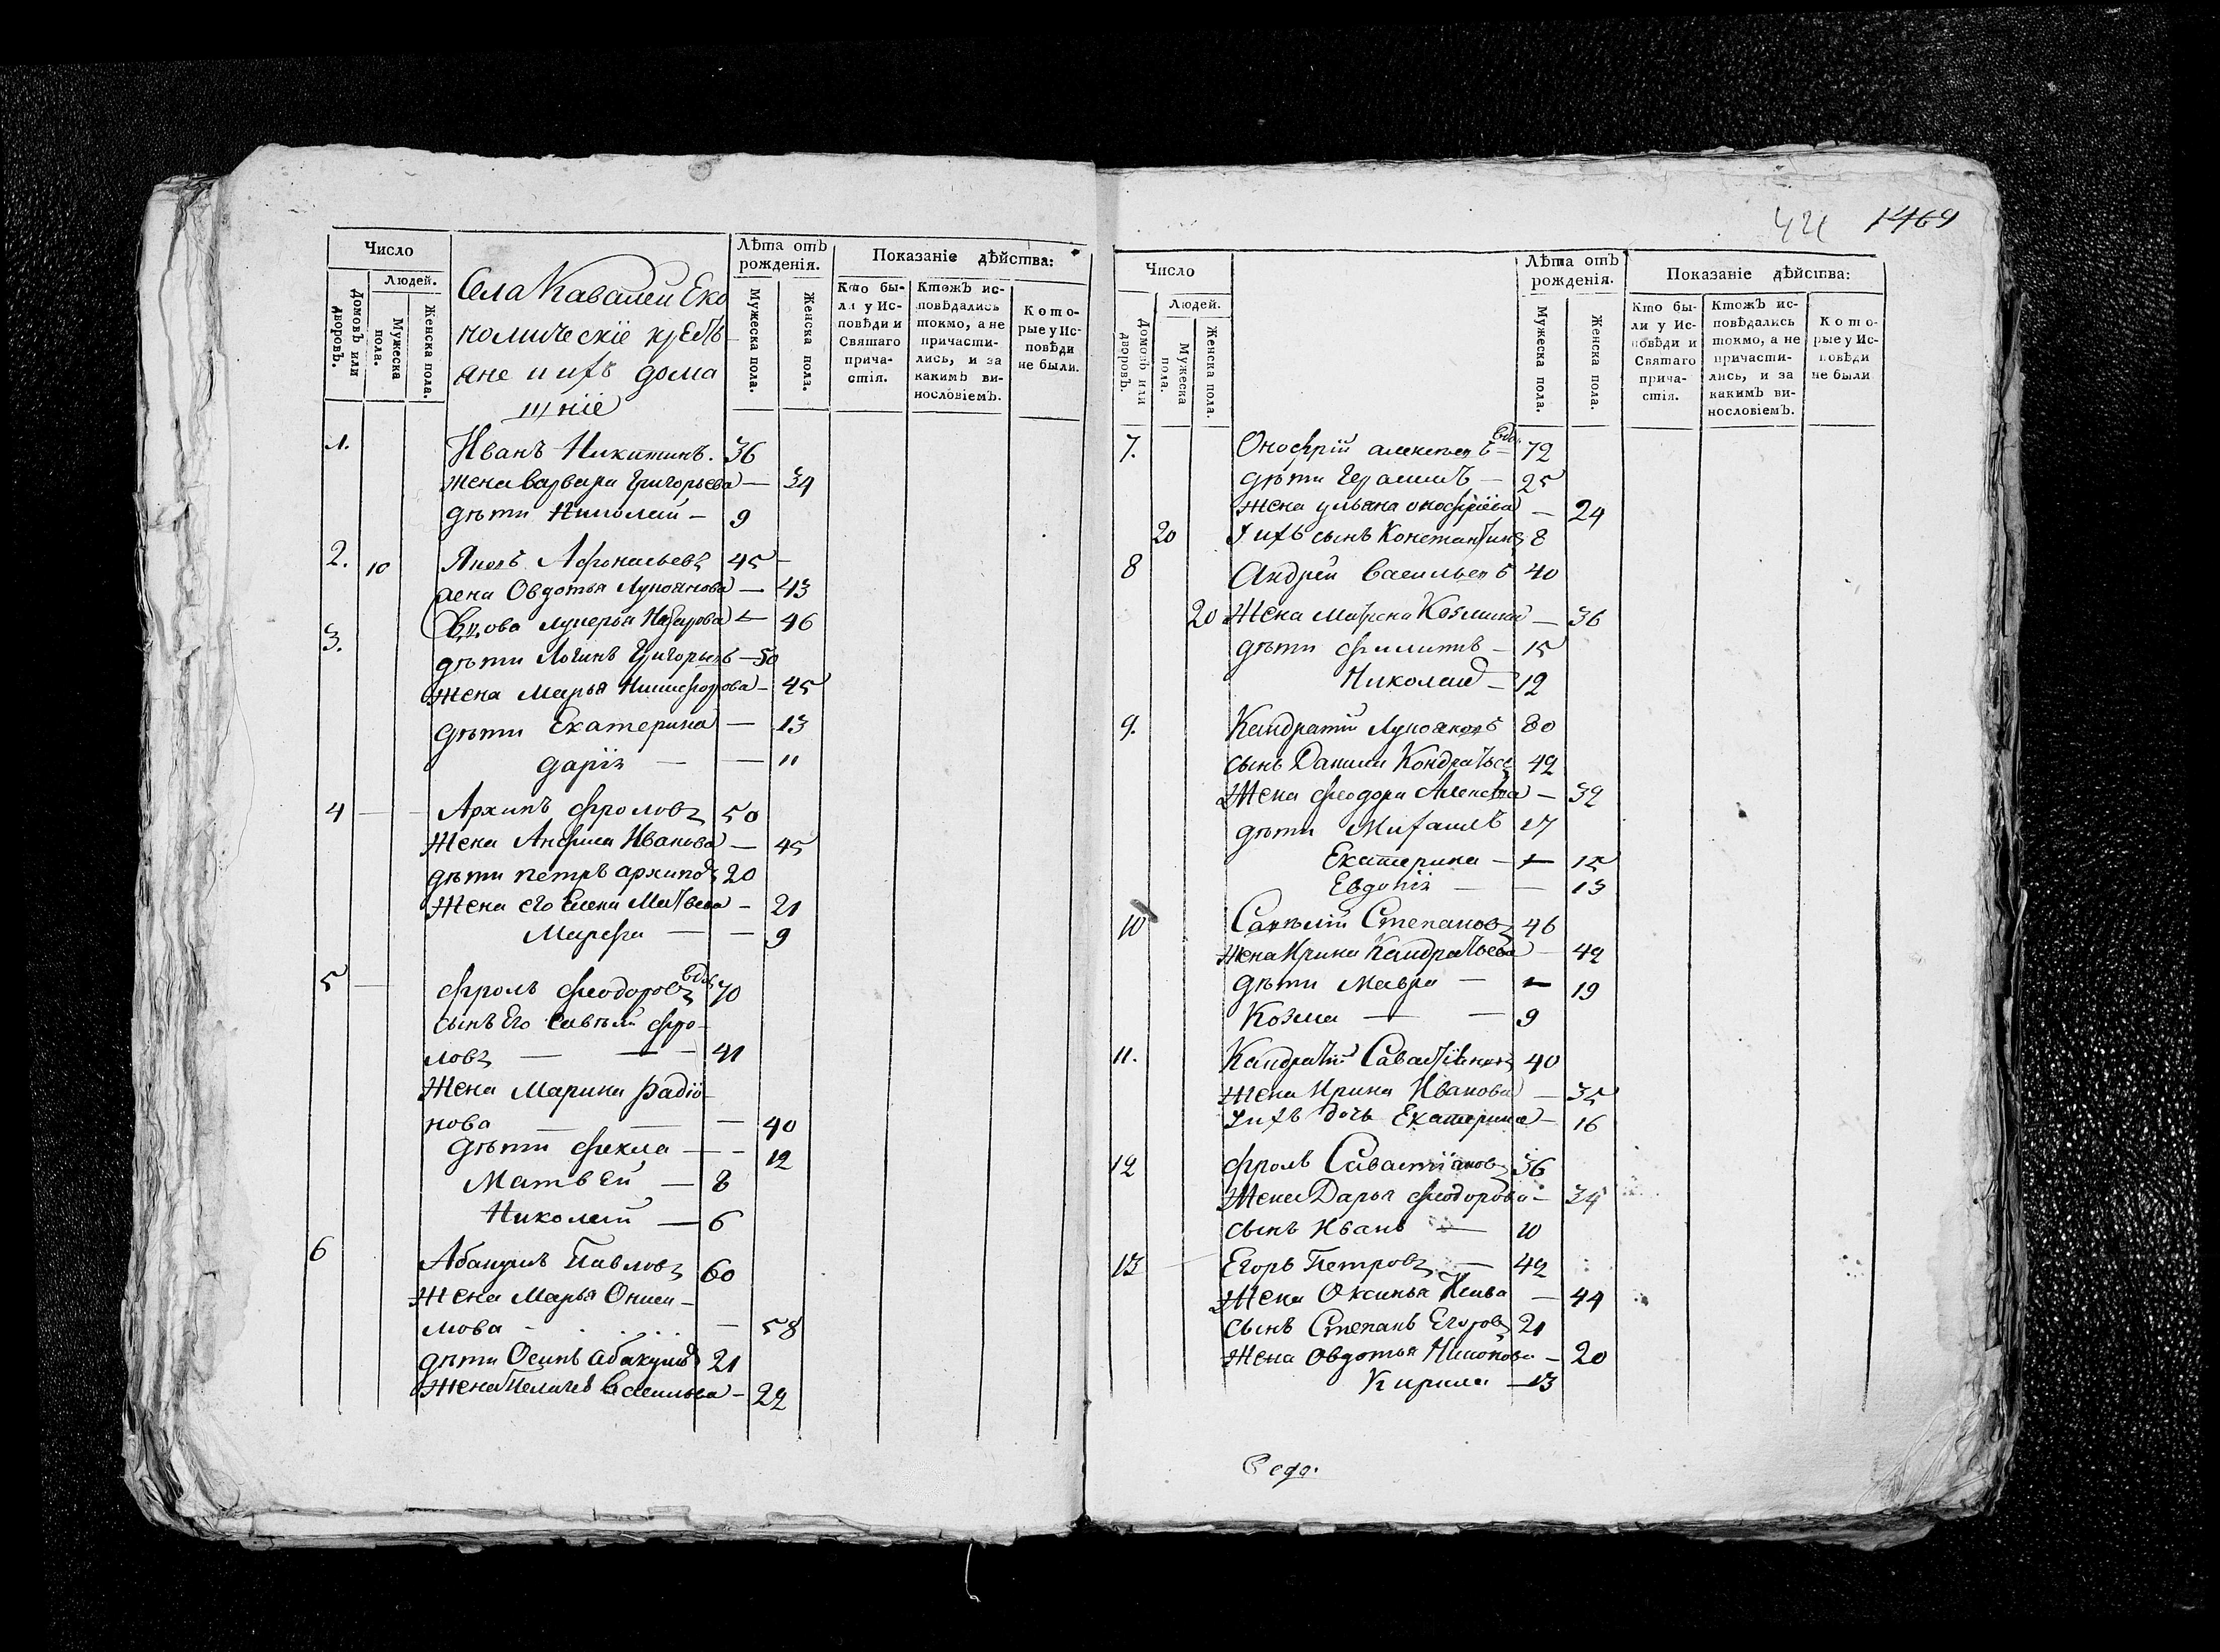 Число
Людей.
Домовъ или дворовъ.
Мужеска пола.
Женска пола.
Села Кавалеи Еко
номическіе крестъ
яне и ихъ дома
шніе
Лѣта отъ рожденія.
Мужеска пола.
Женска пола.
Показаніе дѣйства:
Кто бы-
ли у Ис-
повѣди и
Святаго
прича-
стія.
Ктожъ ис-
повѣдались
токмо, а не
причасти-
лись, и за
какимъ ви-
нословіемъ.
Кото-
рые у Ис-
повѣди
не были.
1. Иванъ Никитинъ. 36
жена Варвара Григорьева — 34
дѣти Николай — 9
2. 10 Яковъ Афонасьевъ 45 —
жена Овдотья Лукоянова — 43
3. Вдова Лукерья Назарова — 46
дѣти Логинъ Григорьевъ — 50
жена Марья Никифорова — 45
дѣти Екатерина — 13
Дарія — — 11
4 — Архипъ Фроловъ 50
Жена Анфиса Иванова — 45
дѣти Петръ Архиповъ 20
Жена его Елена Матвева — 21
Марфа — — 9
5 — Фролъ Феодоровъ вдов 70
сынъ Его Савелй Фро-
ловъ — — — 41
Жена Марина Радіо-
нова — — — 40
Дѣти Фекла — — 12
Матвей — 8
Николай — 6
6 Абакумъ Павловъ 60
Жена Марья Ониси-
мова — 58
дѣти Осипъ Абакумовъ 21
Жена Пелагея Васильева — 22
421 1469
Число
Людей.
Домовъ или дворовъ.
Мужеска пола.
Женска пола.
Лѣта отъ рожденія.
Мужеска пола.
Женска пола.
Показаніе дѣйства:
Кто бы-
ли у Ис-
повѣди и
Святаго
прича-
стія.
Ктожъ ис-
повѣдались
токмо, а не
причасти-
лись, и за
какимъ ви-
нословіемъ.
Кото-
рые у Ис-
повѣди
не были
7. Онофрій Алексеевъ вдов — 72
дѣти Герасимъ — 25
Жена Ульяна Онофріева — 24
20 У ихъ сынъ Константинъ 8
8 Андрей Васильевъ 40
20 Жена Матрена Козмина — 36
дѣти Филипъ — 15
Николай — 12
9. Кандратій Лукояновъ 80
сынъ Данила Кондратьевъ 42
Жена Феодора Алексева — 39
дѣти Михаилъ 17
Екатерина — — 15
Евдокія — — 13
10 Савелій Степановъ 46
Жена Ирина Кандратьева — 42
дѣти Мавра — — 19
Козма — — 9
11. Кандратій Савастіяновъ 40
Жена Ирина Иванова — 35
У ихъ дочь Екатерина — 16
12 Фролъ Савастіяновъ 36
Жена Дарья Феодорова — 34
сынъ Иванъ — 10
13 Егоръ Петровъ — 42
Жена Оксинья — 44
сынъ Степанъ Егоровъ 21
Жена Овдотья — 20
Кирила — 13